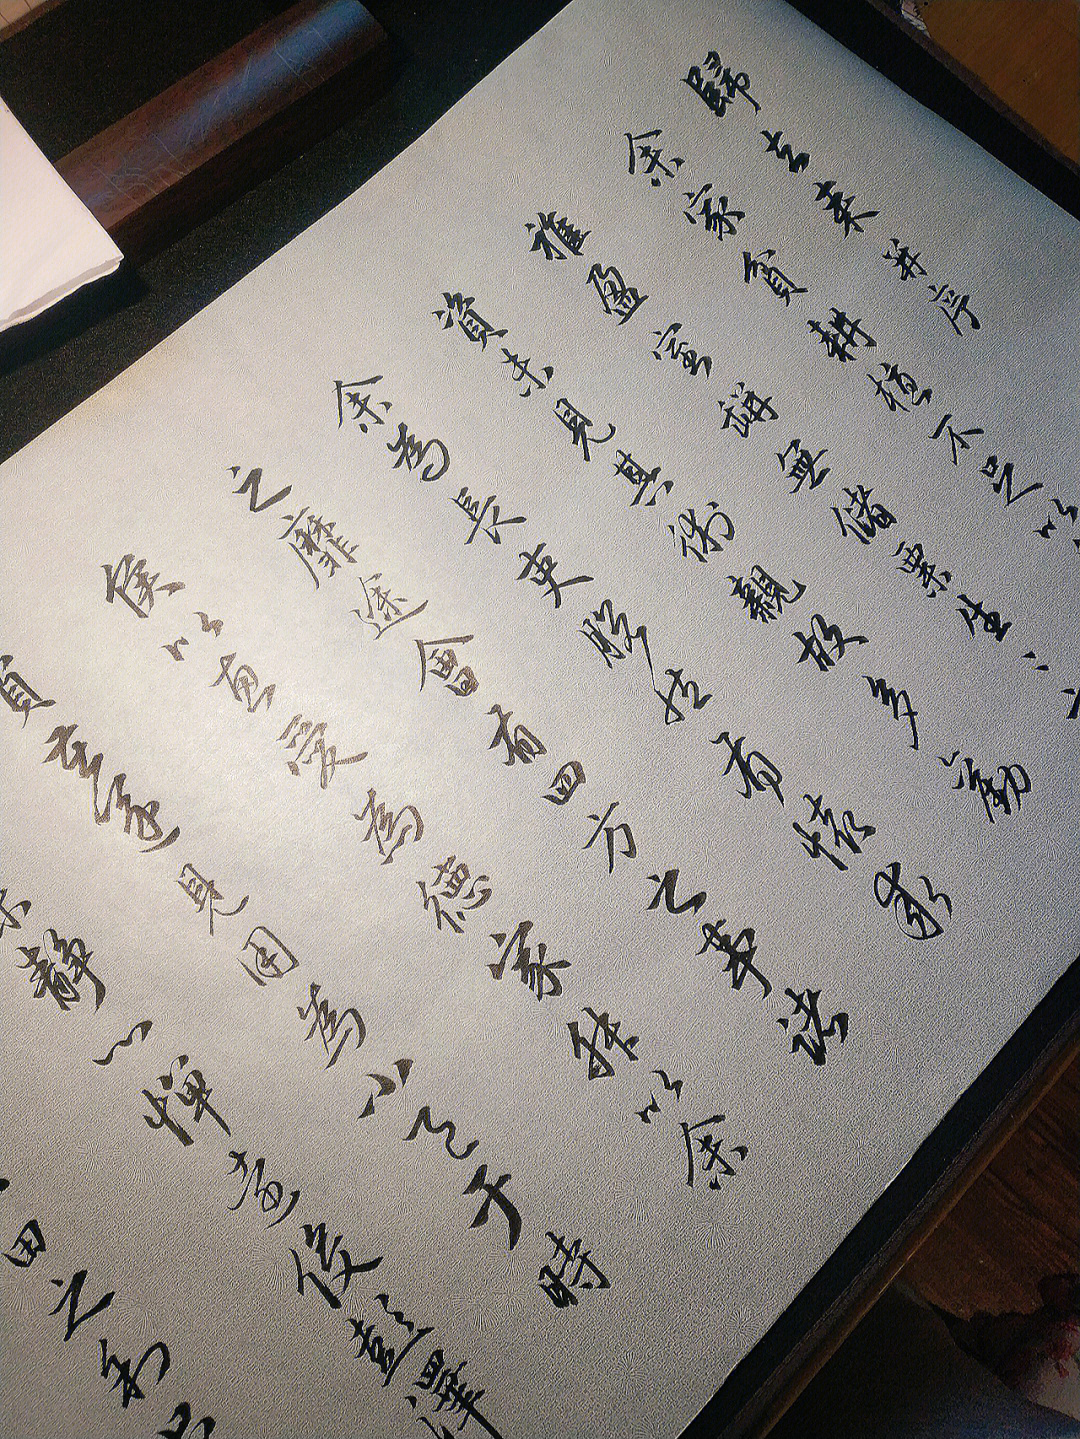 歸去来并序
余家貧耕植不足以
稚盈室缾無儲粟生〻
資未見其術親故多勸
余為長吏脫然有懷求
之靡途會有四方之事諸
侯以惠愛為德家叔以余
貧苦遂見用為小邑于時
未靜心憚遠役彭澤
田之利